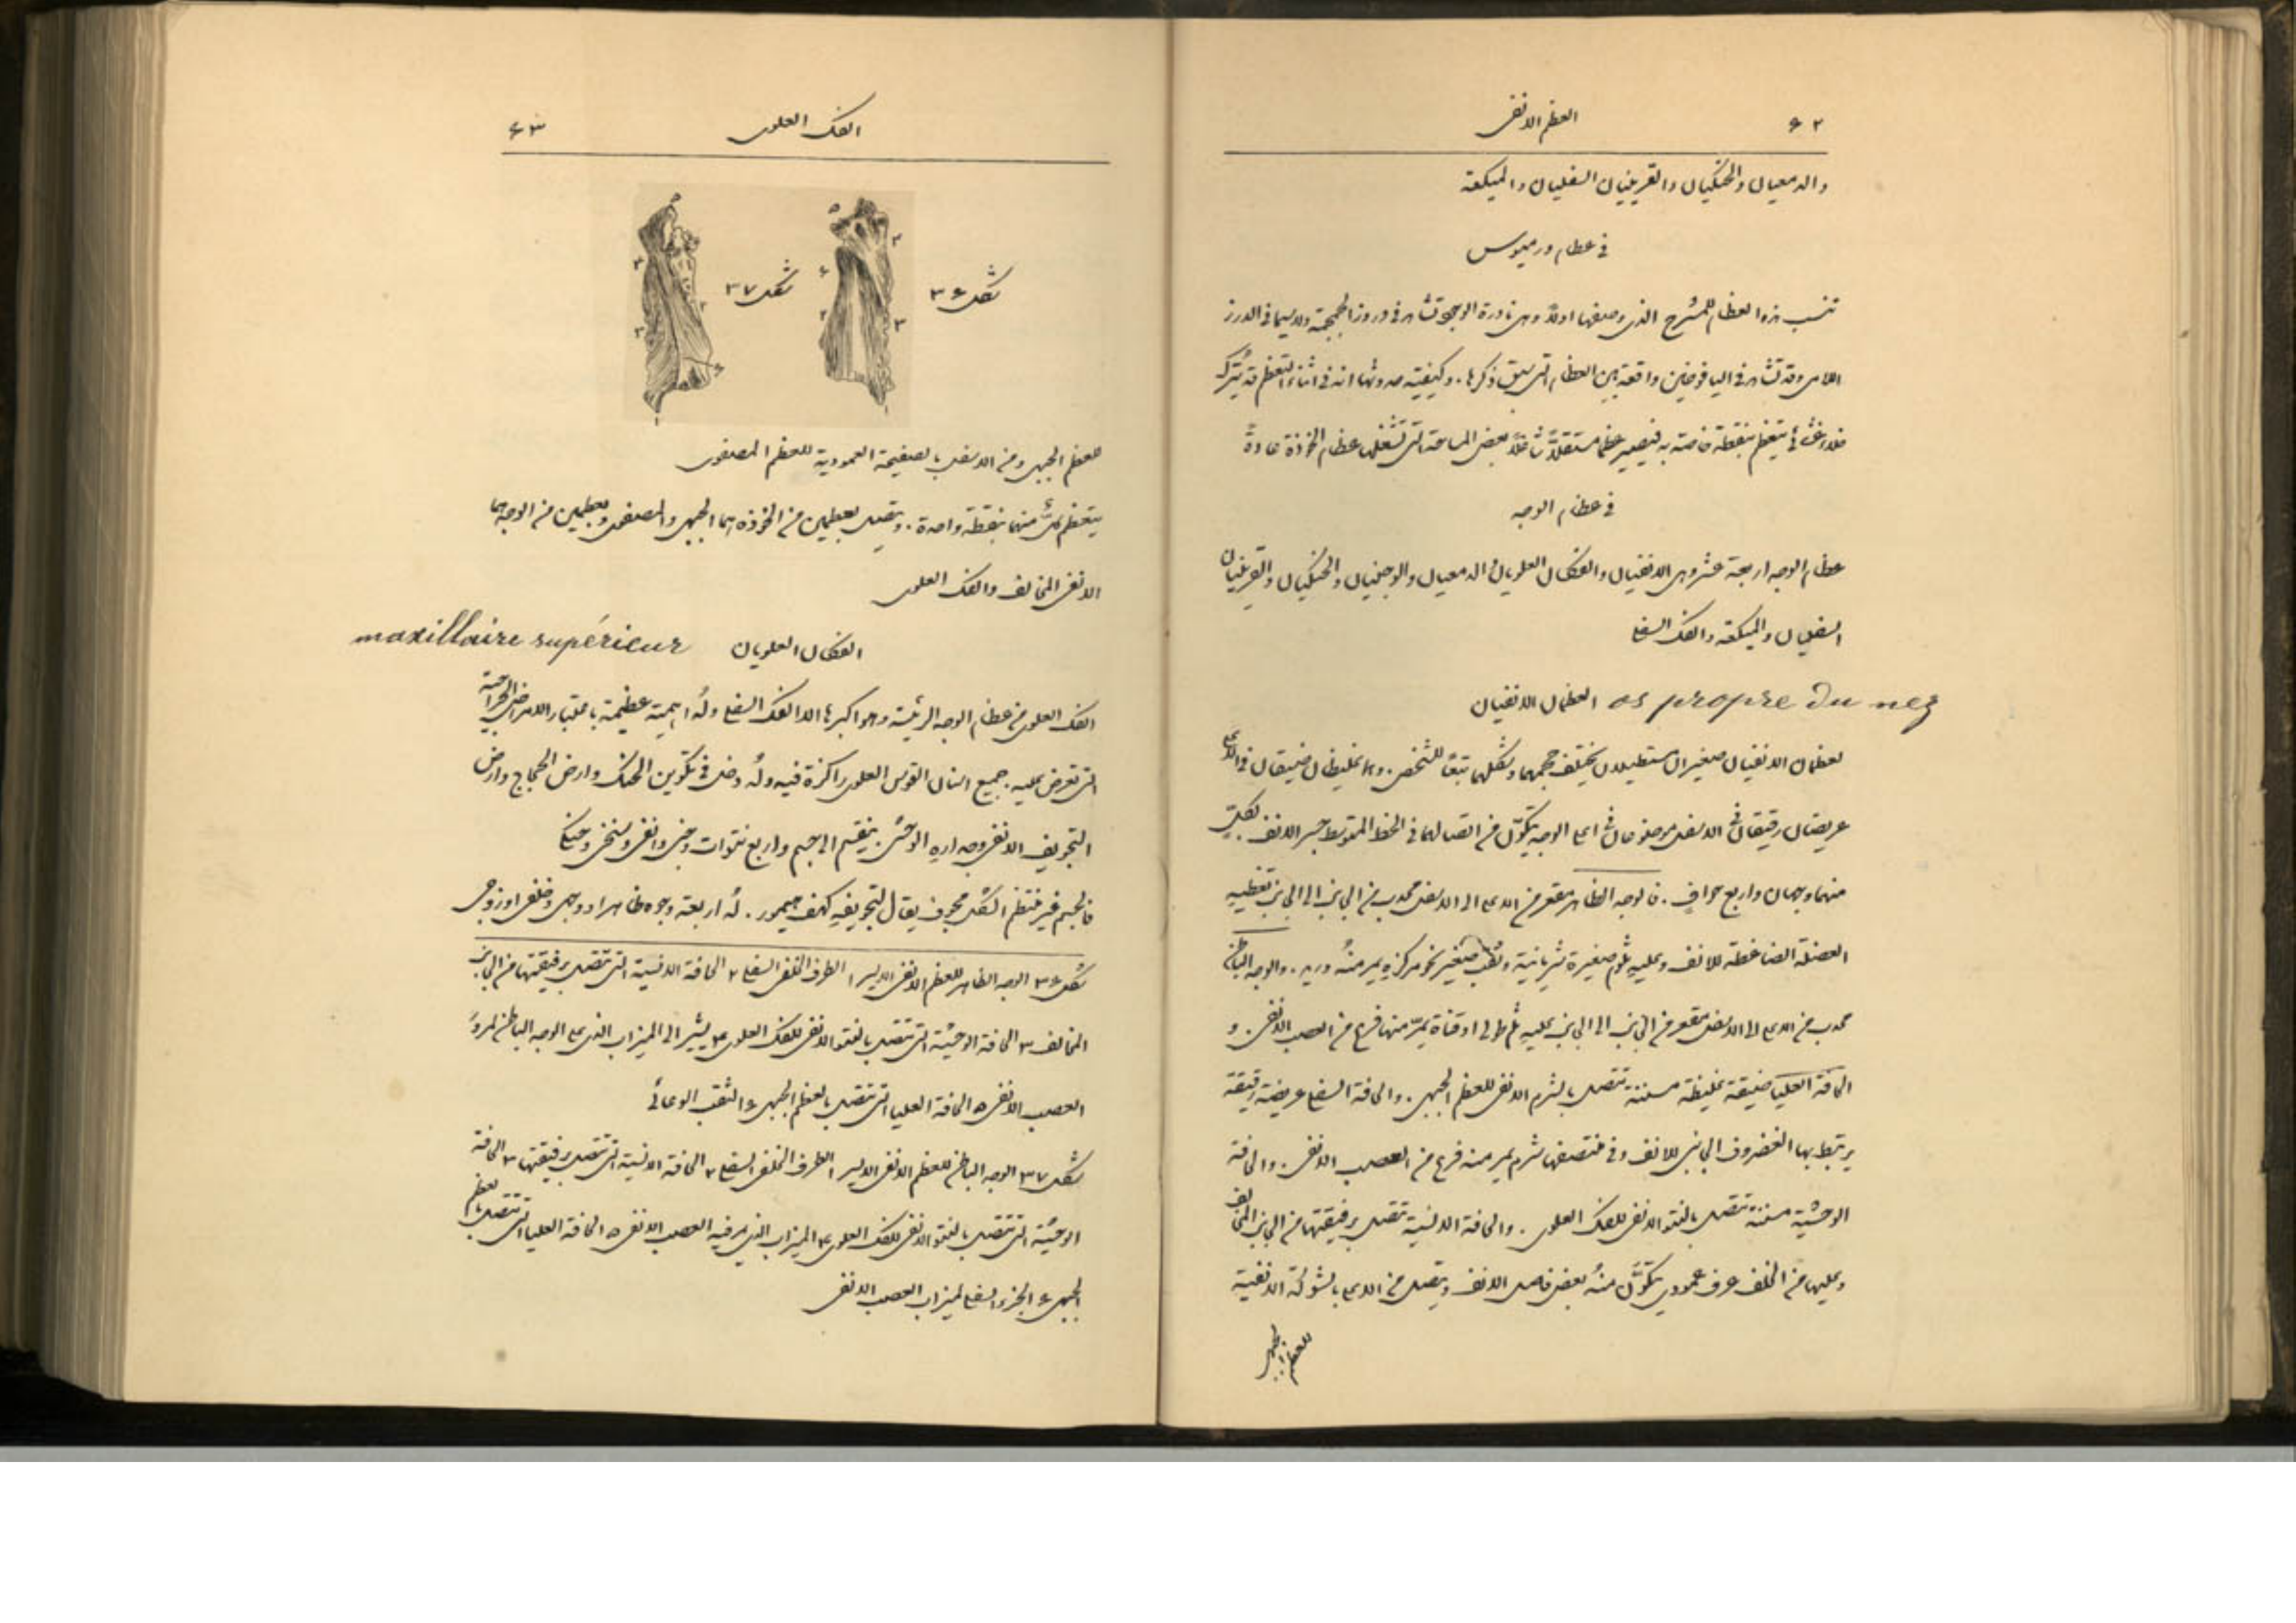 ٦٢ العظم الانفى
والدمعيان والحنكيان والقرينيان السفليان والميكعة
فى عظام ورميوس
تنسب هذه العظام للمشرح الذى وصفها اولاً وهى نادرة الوجود تشاهد فى دروز الجمجمة ولاسيما فى الدرز
اللامى وقد تشاهد فى اليافوخين واقعة بين العظام التى سبق ذكرها. وكيفية حدوثها انه فى اثناء التعظم قد يُترك
خلاء غشائى يتعظم بنقطة خاصة به فيصير عظماً مستقلاً شاغلاً بعض المساحة التى تشغلها عظام الخوذة عادةً
فى عظام الوجه
عظام الوجه اربعة عشر وهى الانفيان والفكان العلويان والدمعيان والوجنيان والحنكيان والقرينيان
السفليان والميكعة والفك السفلى
العظمان الانفيان os propre du nez
العظمان الانفيان صغيران مستطيلان يختلف حجمهما وشكلهما تبعاً للشخص. وهما غليظان ضيقان فى الاعلى
عريضان رقيقان فى الاسفل موضوعان فى اعلى الوجه يتكوّن من اتصالهما فى الخط المتوسط جسر الانف لكلٍ
منهما وجهان واربع حوافٍ. فالوجه الظاهر مقعر من الاعلى الى الاسفل محدب من الجانب الى الجانب تغطيه
العضلة الضاغطة للانف وعليه ثلوم صغيرة شريانية وثقب صغير نحو مركزه يمر منهُ وريد. والوجه الباطن
محدب من الاعلى الى الاسفل مقعر من الجانب الى الجانب عليه ثلم طولى او قناة يمرّ منها فرع من العصب الانفى. و
الحافة العليا ضيقة غليظة مسننة تتصل بالشرم الانفى للعظم الجبهى. والحافة السفلى عريضة رقيقة
يرتبط بها الغضروف الجانبى للانف وفى منتصفها شرم يمر منه فرع من العصب الانفى. والحافة
الوحشية مسننة تتصل بالنتو الانفى للفك العلوى. والحافة الانسية تتصل برفيقتها من الجانب المخالف
وعليها من الخلف عرف عمودى يتكوَّن منهُ بعض فاصل الانف ويتصل من الاعلى بالشوكة الانفية
للعظم الجبهى
الفك العلوى ٦٣
شكل ٣٦ شكل ٣٧
للعظم الجبهى ومن الاسفل بالصفيحة العمودية للعظم المصفوى
يتعظم كلٌ منهما بنقطة واحدة. ويتصل بعظمين من الخوذة هما الجبهى والمصفوى وبعظمين من الوجه هما
الانفى المخالف والفك العلوى
الفكان العلويان maxillaire supérieur
الفك العلوى من عظام الوجه الرئيسة وهو اكبرها الا الفك السفلى ولهُ اهمية عظيمة باعتبار الامراض الجراحية
التى تعرض عليه. جميع اسنان القوس العلوى راكزة فيه ولهُ دخل فى تكوين الحنك وارض الحجاج وارض
التجويف الانفى وجداره الوحشى. ينقسم الى جسم واربع نتوات وجنى وانفى وسنخى وحنكى
فالجسم غير منتظم الشكل مجوف يقال لتجويفه كهف هيمور. لهُ اربعة وجوه ظاهر او وجهى وخلفى او زوجى
شكل ٣٦ الوجه الظاهر للعظم الانفى الايسر ١ الطرف الخلفى السفلى ٢ الحافة الانسية التى تتصل برفيقتها من الجانب
المخالف ٣ الحافة الوحشية التى تتصل بالنتو الانفى للفك العلوى ٤ يشير الى الميزاب الذى على الوجه الباطن لمرور
العصب الانفى ٥ الحافة العليا التى تتصل بالعظم الجبهى ٦ الثقب الوعائى
شكل ٣٧ الوجه الباطن للعظم الانفى الايسر ١ الطرف الخلفى السفلى ٢ الحافة الانسية التى تتصل برفيقتها ٣ الحافة
الوحشية التى تتصل بالنتو الانفى للفك العلوى ٤ الميزاب الذى يمر فيه العصب الانفى ٥ الحافة العليا التى تتصل بالعظم
الجبهى ٦ الجزء السفلى لميزاب العصب الانفى